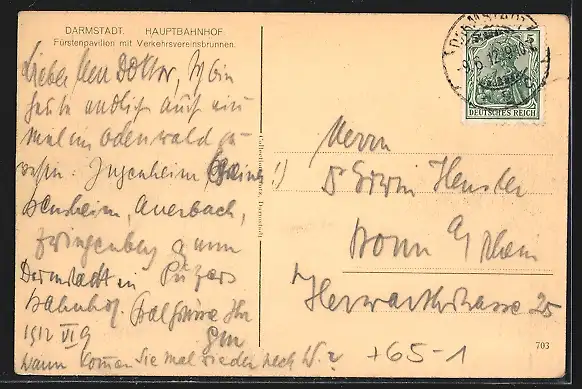 DARMSTADT. HAUPTBAHNHOF
Fürstenpavillon mit Verkehrsvereinsbrunnen.
Lieber Herr Doktor, Ich bin
heute endlich auch ein
mal im Odenwald ge-
wesen: Jugenheim,
Bensheim, Auerbach,
Zwingenberg
Darmstadt in Pützers
Bahnhof. Ihr
1912 VI 9
Wann kommen Sie mal wieder nach W.?
DEUTSCHES REICH
5
9.6.12.9-10
Herrn
Dr Erwin Hensler
Bonn a/Rhein
Herwarthstrasse 25
+65-1
703